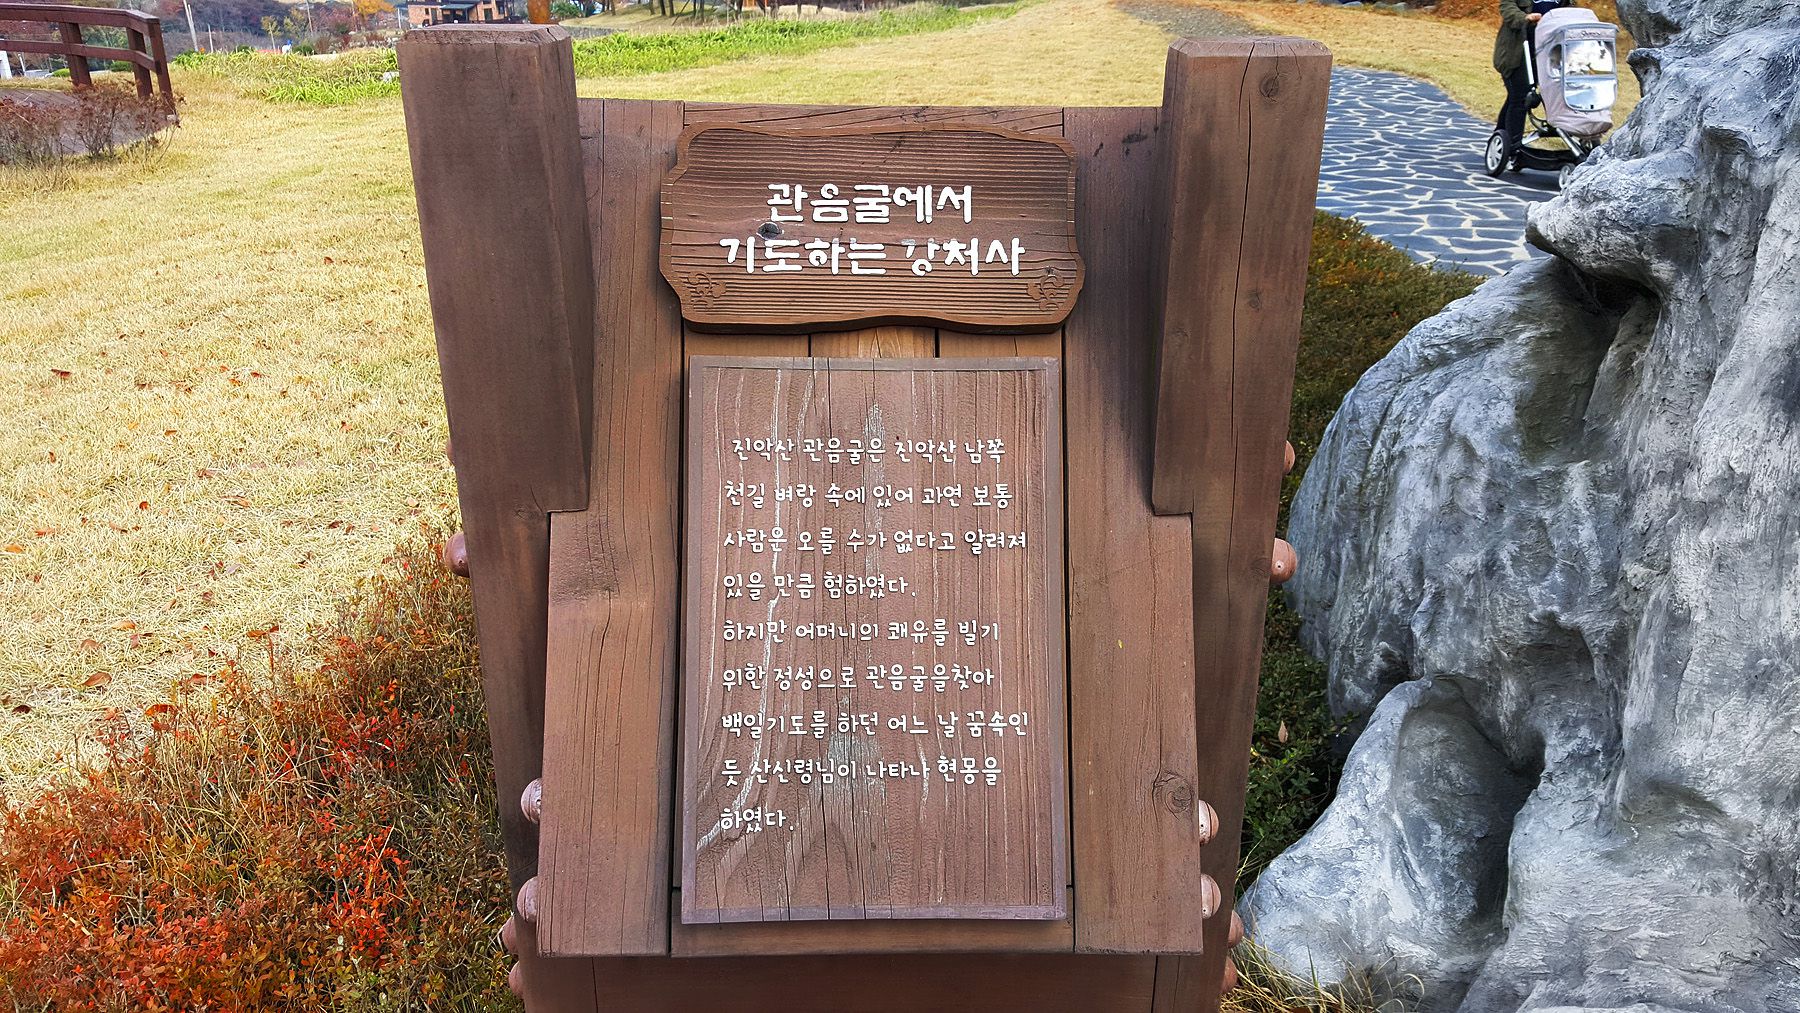 관음굴에서
기도하는 강처사
진악산 관음굴은 진악산 남쪽
천길 벼랑 속에 있어 과연 보통
사람은 오를 수가 없다고 알려져
있을 만큼 험하였다.
하지만 어머니의 쾌유를 빌기
위한 정성으로 관음굴을찾아
백일기도를 하던 어느 날 꿈속인
듯 산신령님이 나타나 현몽을
하였다.